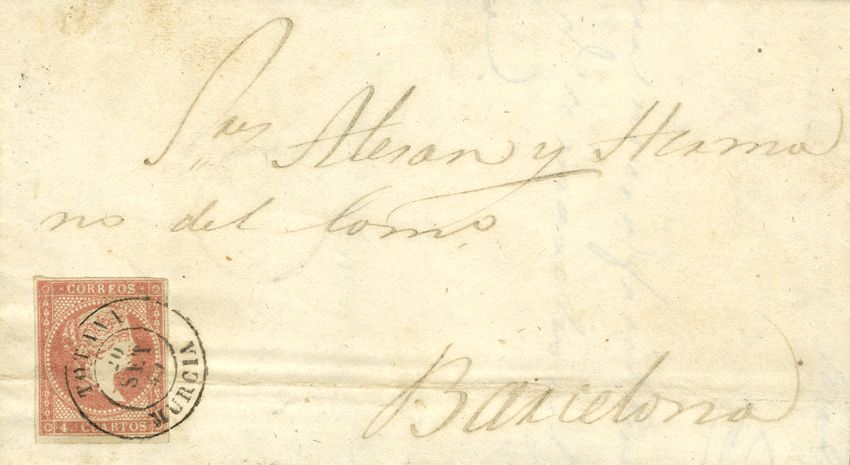 Sres Alesan y Herma
no del Come.
Barcelona
CORREOS
4 CUARTOS
TOTANA
20
SET
59
MURCIA